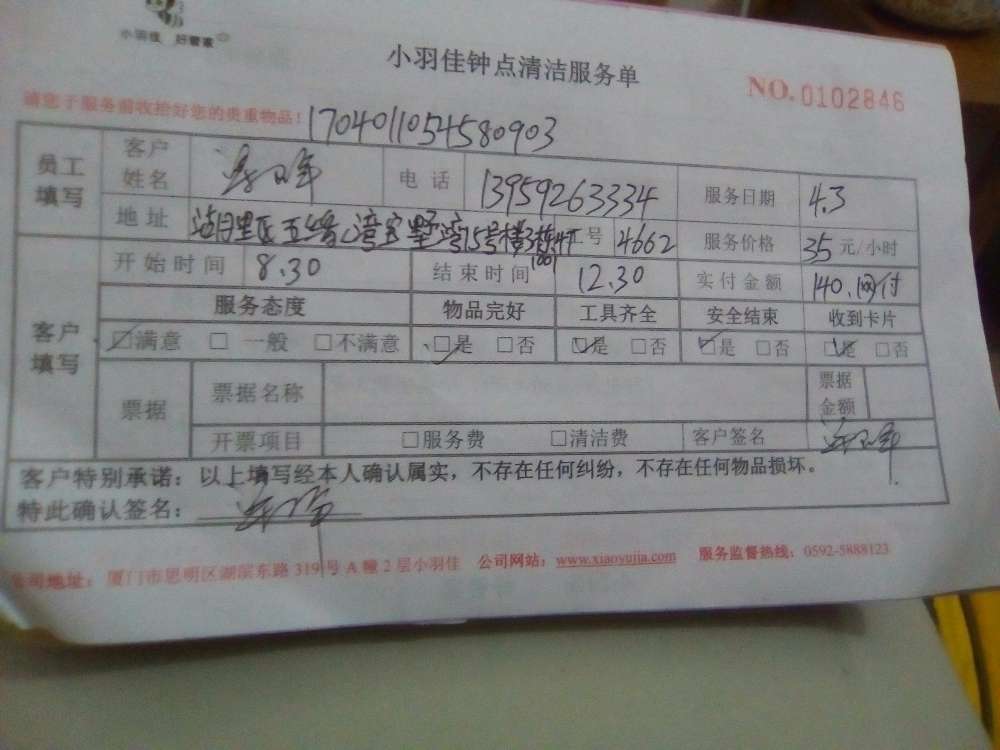 小羽佳 好管家
小羽佳钟点清洁服务单
NO.0102846
请您于服务前收拾好您的贵重物品！
1704011054580903
员工填写 客户姓名 电话 13959263334 服务日期 4.3
地址 湖里区五缘湾 墅湾15号 工号 4662 服务价格 35 元/小时
客户填写 开始时间 8.30 结束时间 12.30 实付金额 140.网付
服务态度 物品完好 工具齐全 安全结束 收到卡片
☑满意 □一般 □不满意 ☑是 □否 ☑是 □否 ☑是 □否 ☑是 □否
票据 票据名称 票据金额
开票项目 □服务费 □清洁费 客户签名
客户特别承诺：以上填写经本人确认属实，不存在任何纠纷，不存在任何物品损坏。
特此确认签名：
公司地址：厦门市思明区湖滨东路319号A幢2层小羽佳 公司网站：www.xiaoyujia.com 服务监督热线：0592-5888123